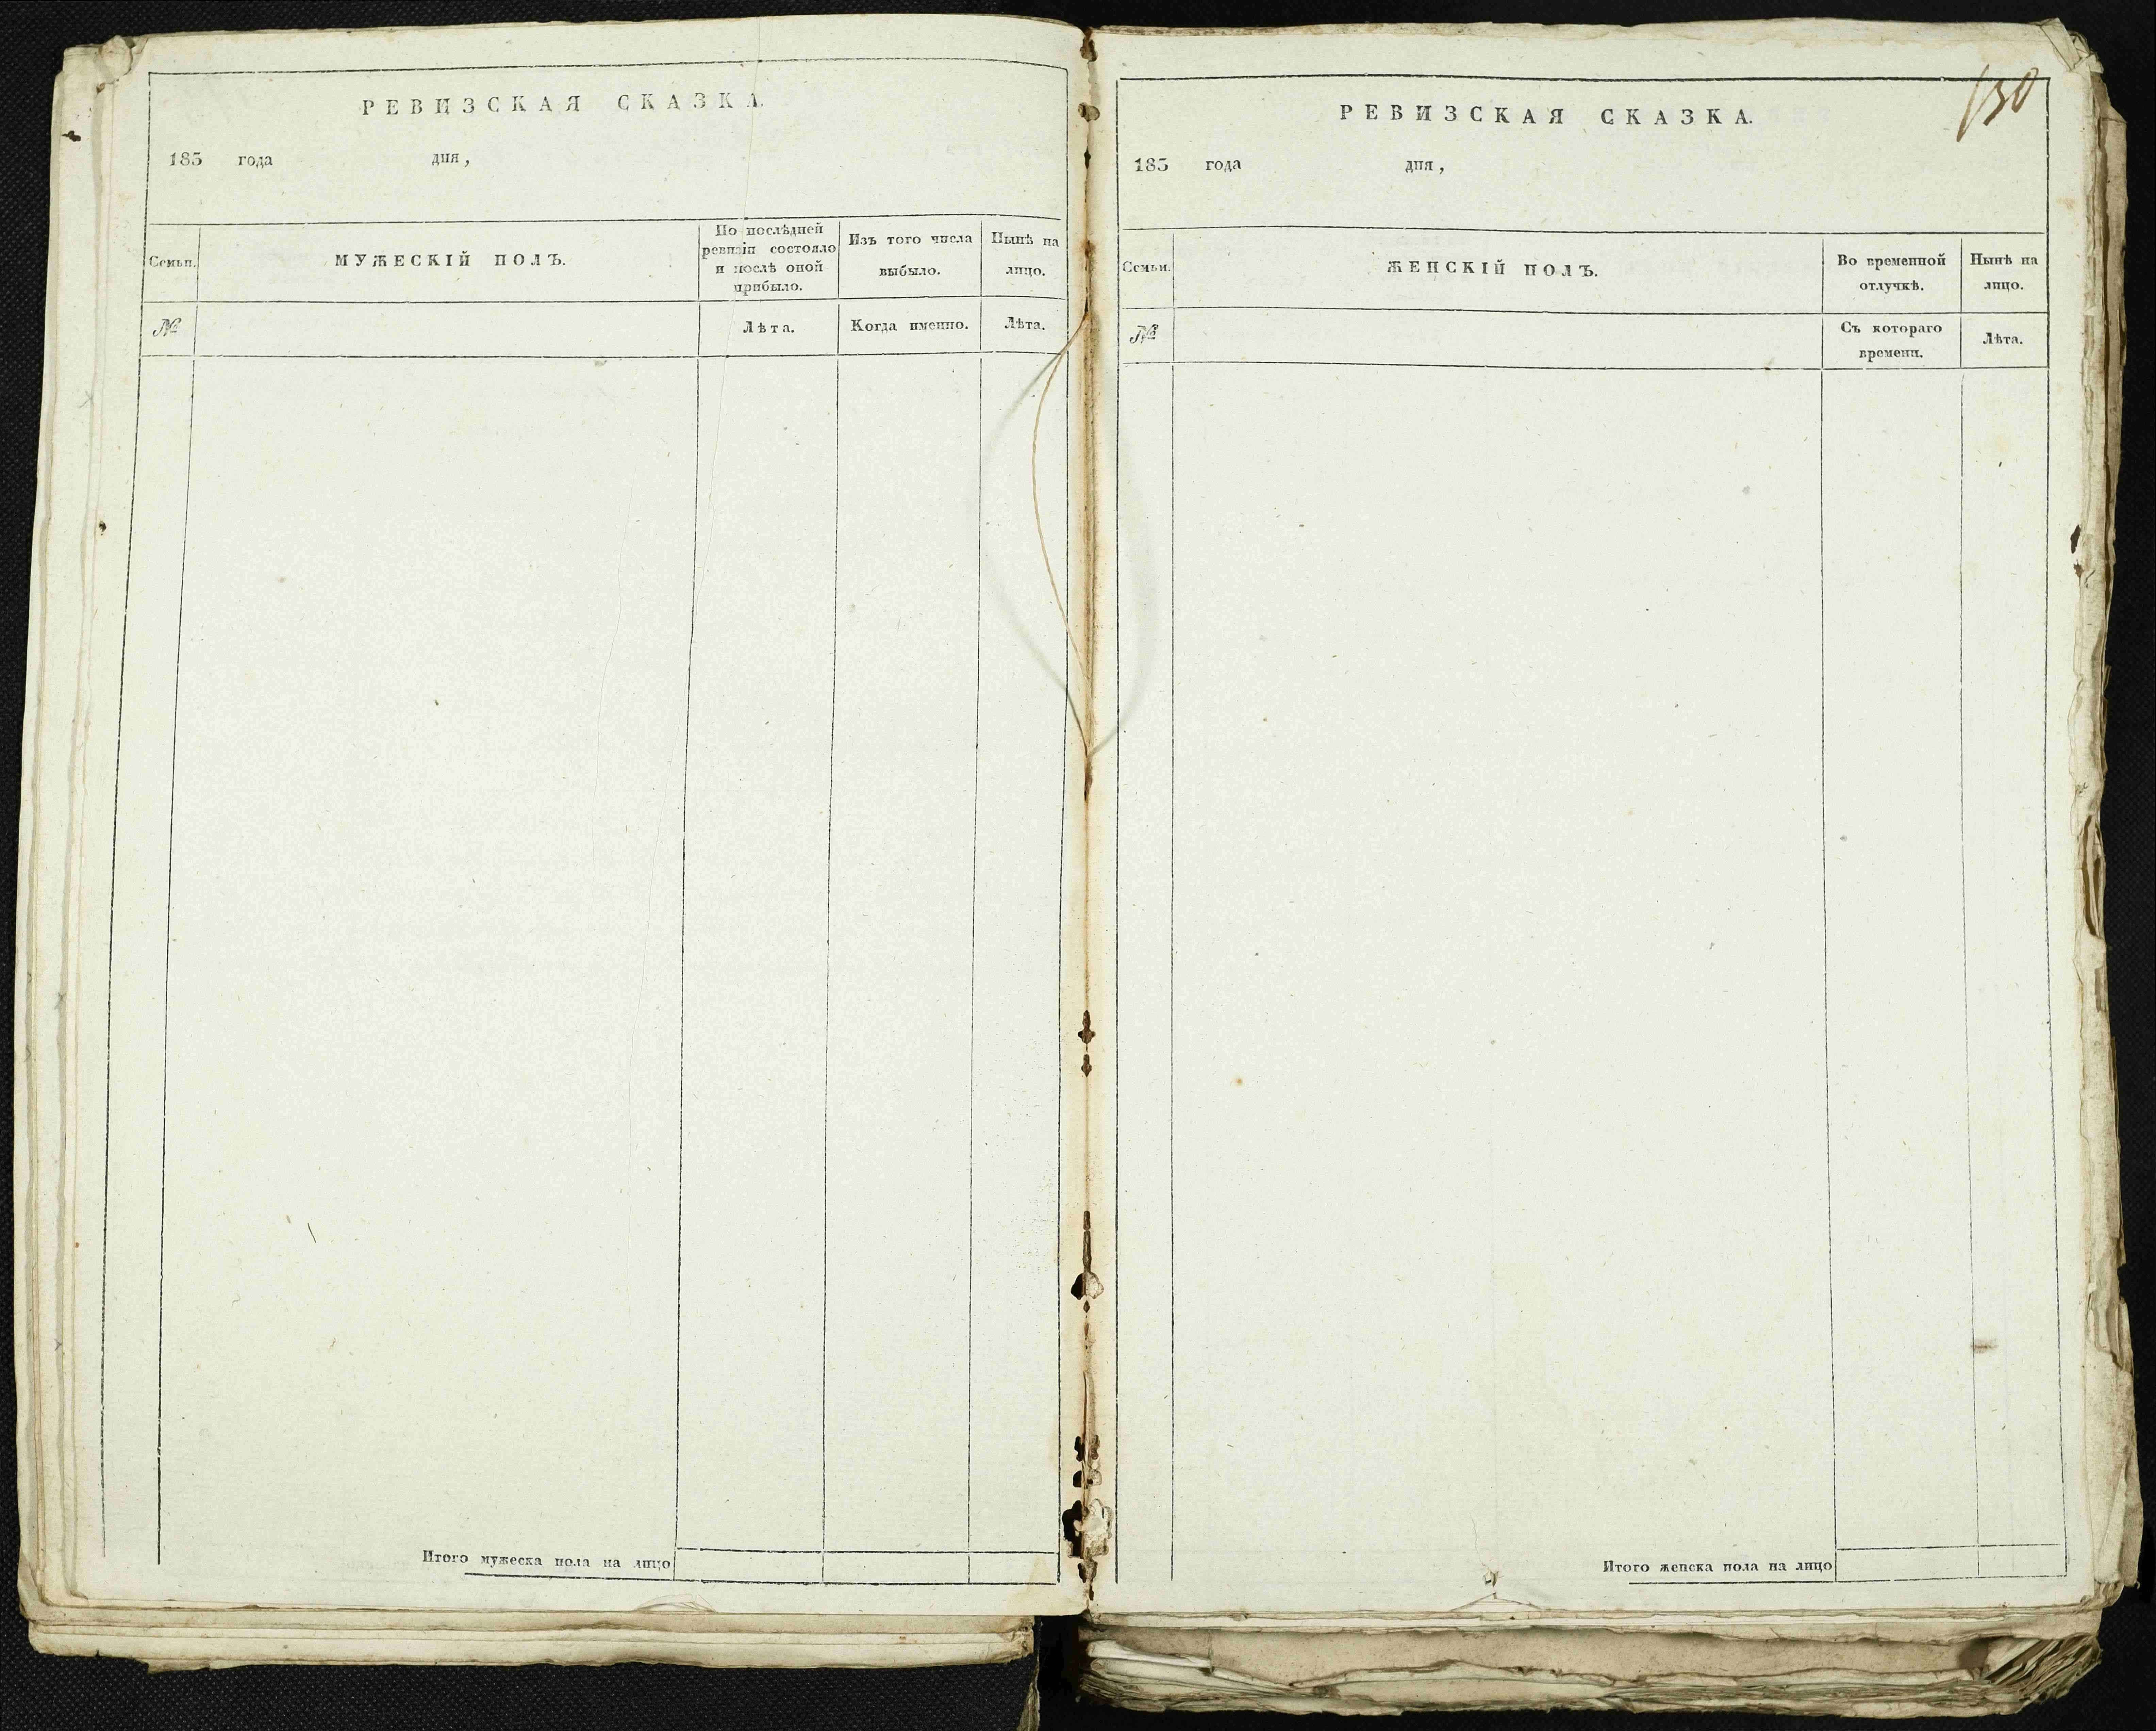 РЕВИЗСКАЯ СКАЗКА.
185 года дня,
Семьи.
МУЖЕСКІЙ ПОЛЪ.
По послѣдней
ревизіи состояло
и послѣ оной
прибыло.
Изъ того числа
выбыло.
Нынѣ на
лицо.
№
Лѣта.
Когда именно.
Лѣта.
Итого мужеска пола на лицо
130
РЕВИЗСКАЯ СКАЗКА.
185 года дня,
Семьи.
ЖЕНСКІЙ ПОЛЪ.
Во временной
отлучкѣ.
Нынѣ на
лицо.
№
Съ котораго
времени.
Лѣта.
Итого женска пола на лицо